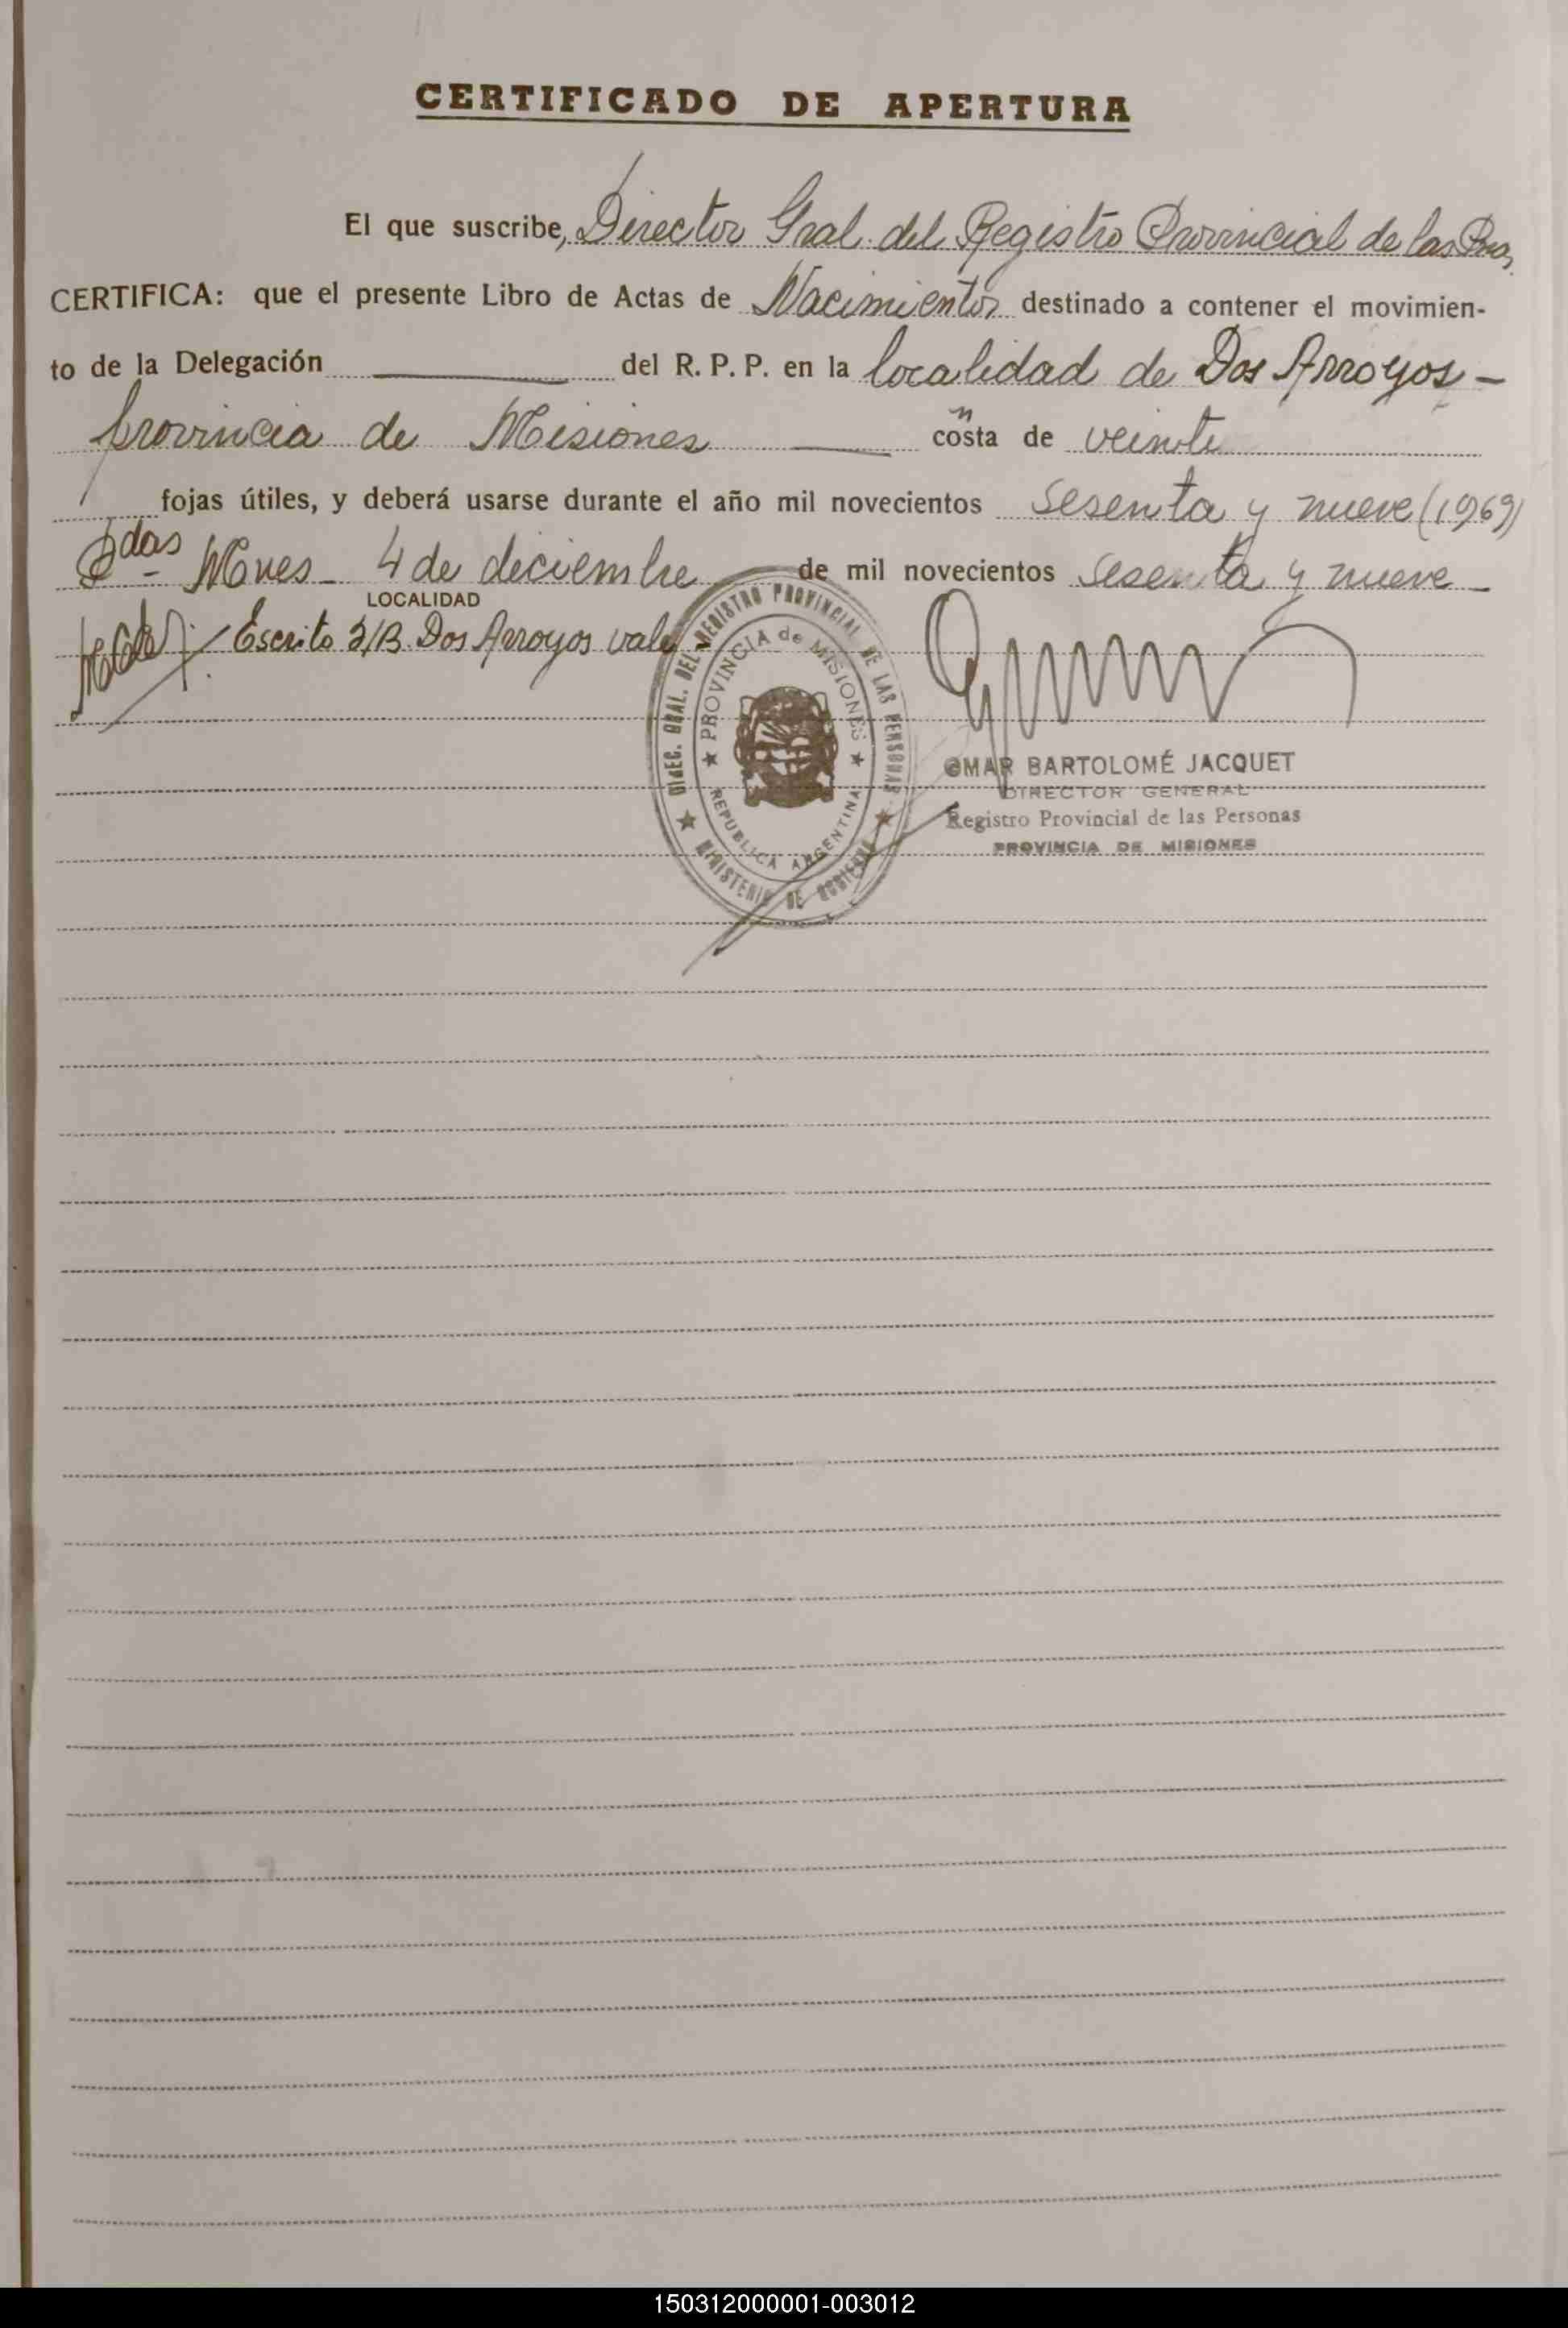 CERTIFICADO DE APERTURA
El que suscribe, Director Gral. del Registro Provincial de las Pnas,
CERTIFICA: que el presente Libro de Actas de Nacimientos destinado a contener el movimien-
to de la Delegación del R. P. P. en la localidad de Dos Arroyos -
provincia de Misiones consta de veinte
fojas útiles, y deberá usarse durante el año mil novecientos sesenta y nueve (1969)
Pdas Mnes - 4 de diciembre de mil novecientos sesenta y nueve -
LOCALIDAD
Escrito S/B. Dos Arroyos vale
DIREC. GRAL. DEL REGISTRO PROVINCIAL DE LAS PERSONAS
★ PROVINCIA de MISIONES ★
REPUBLICA ARGENTINA
★ MINISTERIO DE GOBIERNO ★
OMAR BARTOLOMÉ JACQUET
DIRECTOR GENERAL
Registro Provincial de las Personas
PROVINCIA DE MISIONES
150312000001-003012